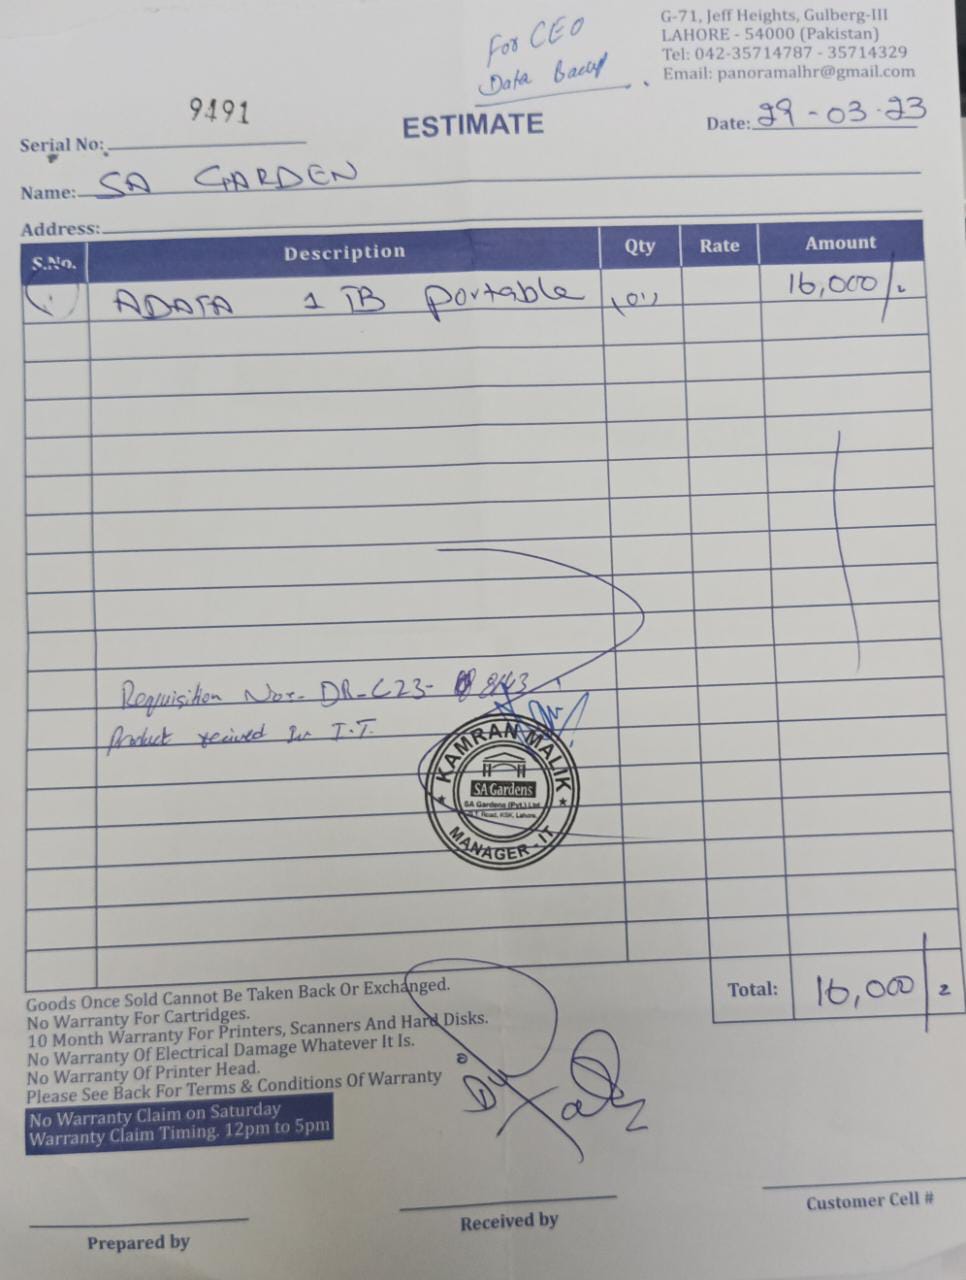 G-71, Jeff Heights, Gulberg-III
LAHORE - 54000 (Pakistan)
Tel: 042-35714787 - 35714329
Email: panoramalhr@gmail.com
For CEO
Data Backup
9491
ESTIMATE
Date: 29-03-23
Serial No:
Name: SA GARDEN
Address:
S.No. Description Qty Rate Amount
1 ADATA 1 TB portable 16,000/-
Requisition No:- DR-C23-
Product recived In I.T.
KAMRAN MALIK
SA Gardens
SA Gardens (Pvt.) Ltd.
G.T. Road, KSK, Lahore.
MANAGER - IT
Total: 16,000/-
Goods Once Sold Cannot Be Taken Back Or Exchanged.
No Warranty For Cartridges.
10 Month Warranty For Printers, Scanners And Hard Disks.
No Warranty Of Electrical Damage Whatever It Is.
No Warranty Of Printer Head.
Please See Back For Terms & Conditions Of Warranty
No Warranty Claim on Saturday
Warranty Claim Timing. 12pm to 5pm
Prepared by
Received by
Customer Cell #